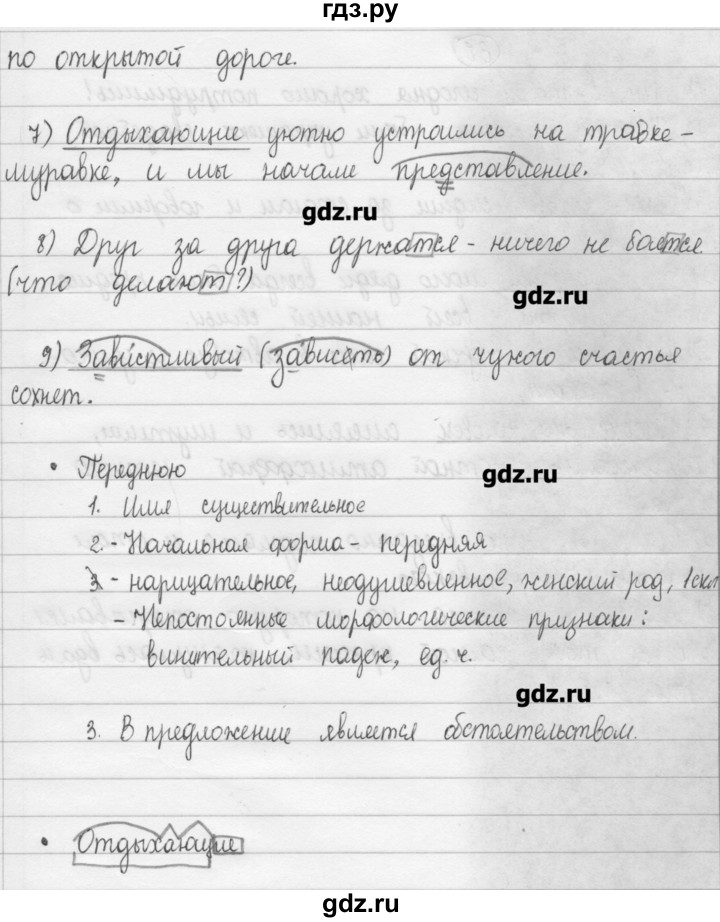 гдз.ру
по открытой дороге.
7) Отдыхающие уютно устроились на травке-
муравке, и мы начали представление.
gdz.ru
8) Друг за друга держатся - ничего не боятся.
(что делают?)
gdz.ru
9) Завистливый (зависеть) от чужого счастья
сохнет.
• Переднюю
gdz.ru
1. Имя существительное
2. - Начальная форма - передняя
- нарицательное, неодушевленное, женский род, 1скл
- Непостоянные морфологические признаки:
винительный падеж, ед. ч.
gdz.ru
3. В предложение является обстоятельством.
• Отдыхающие
gdz.ru